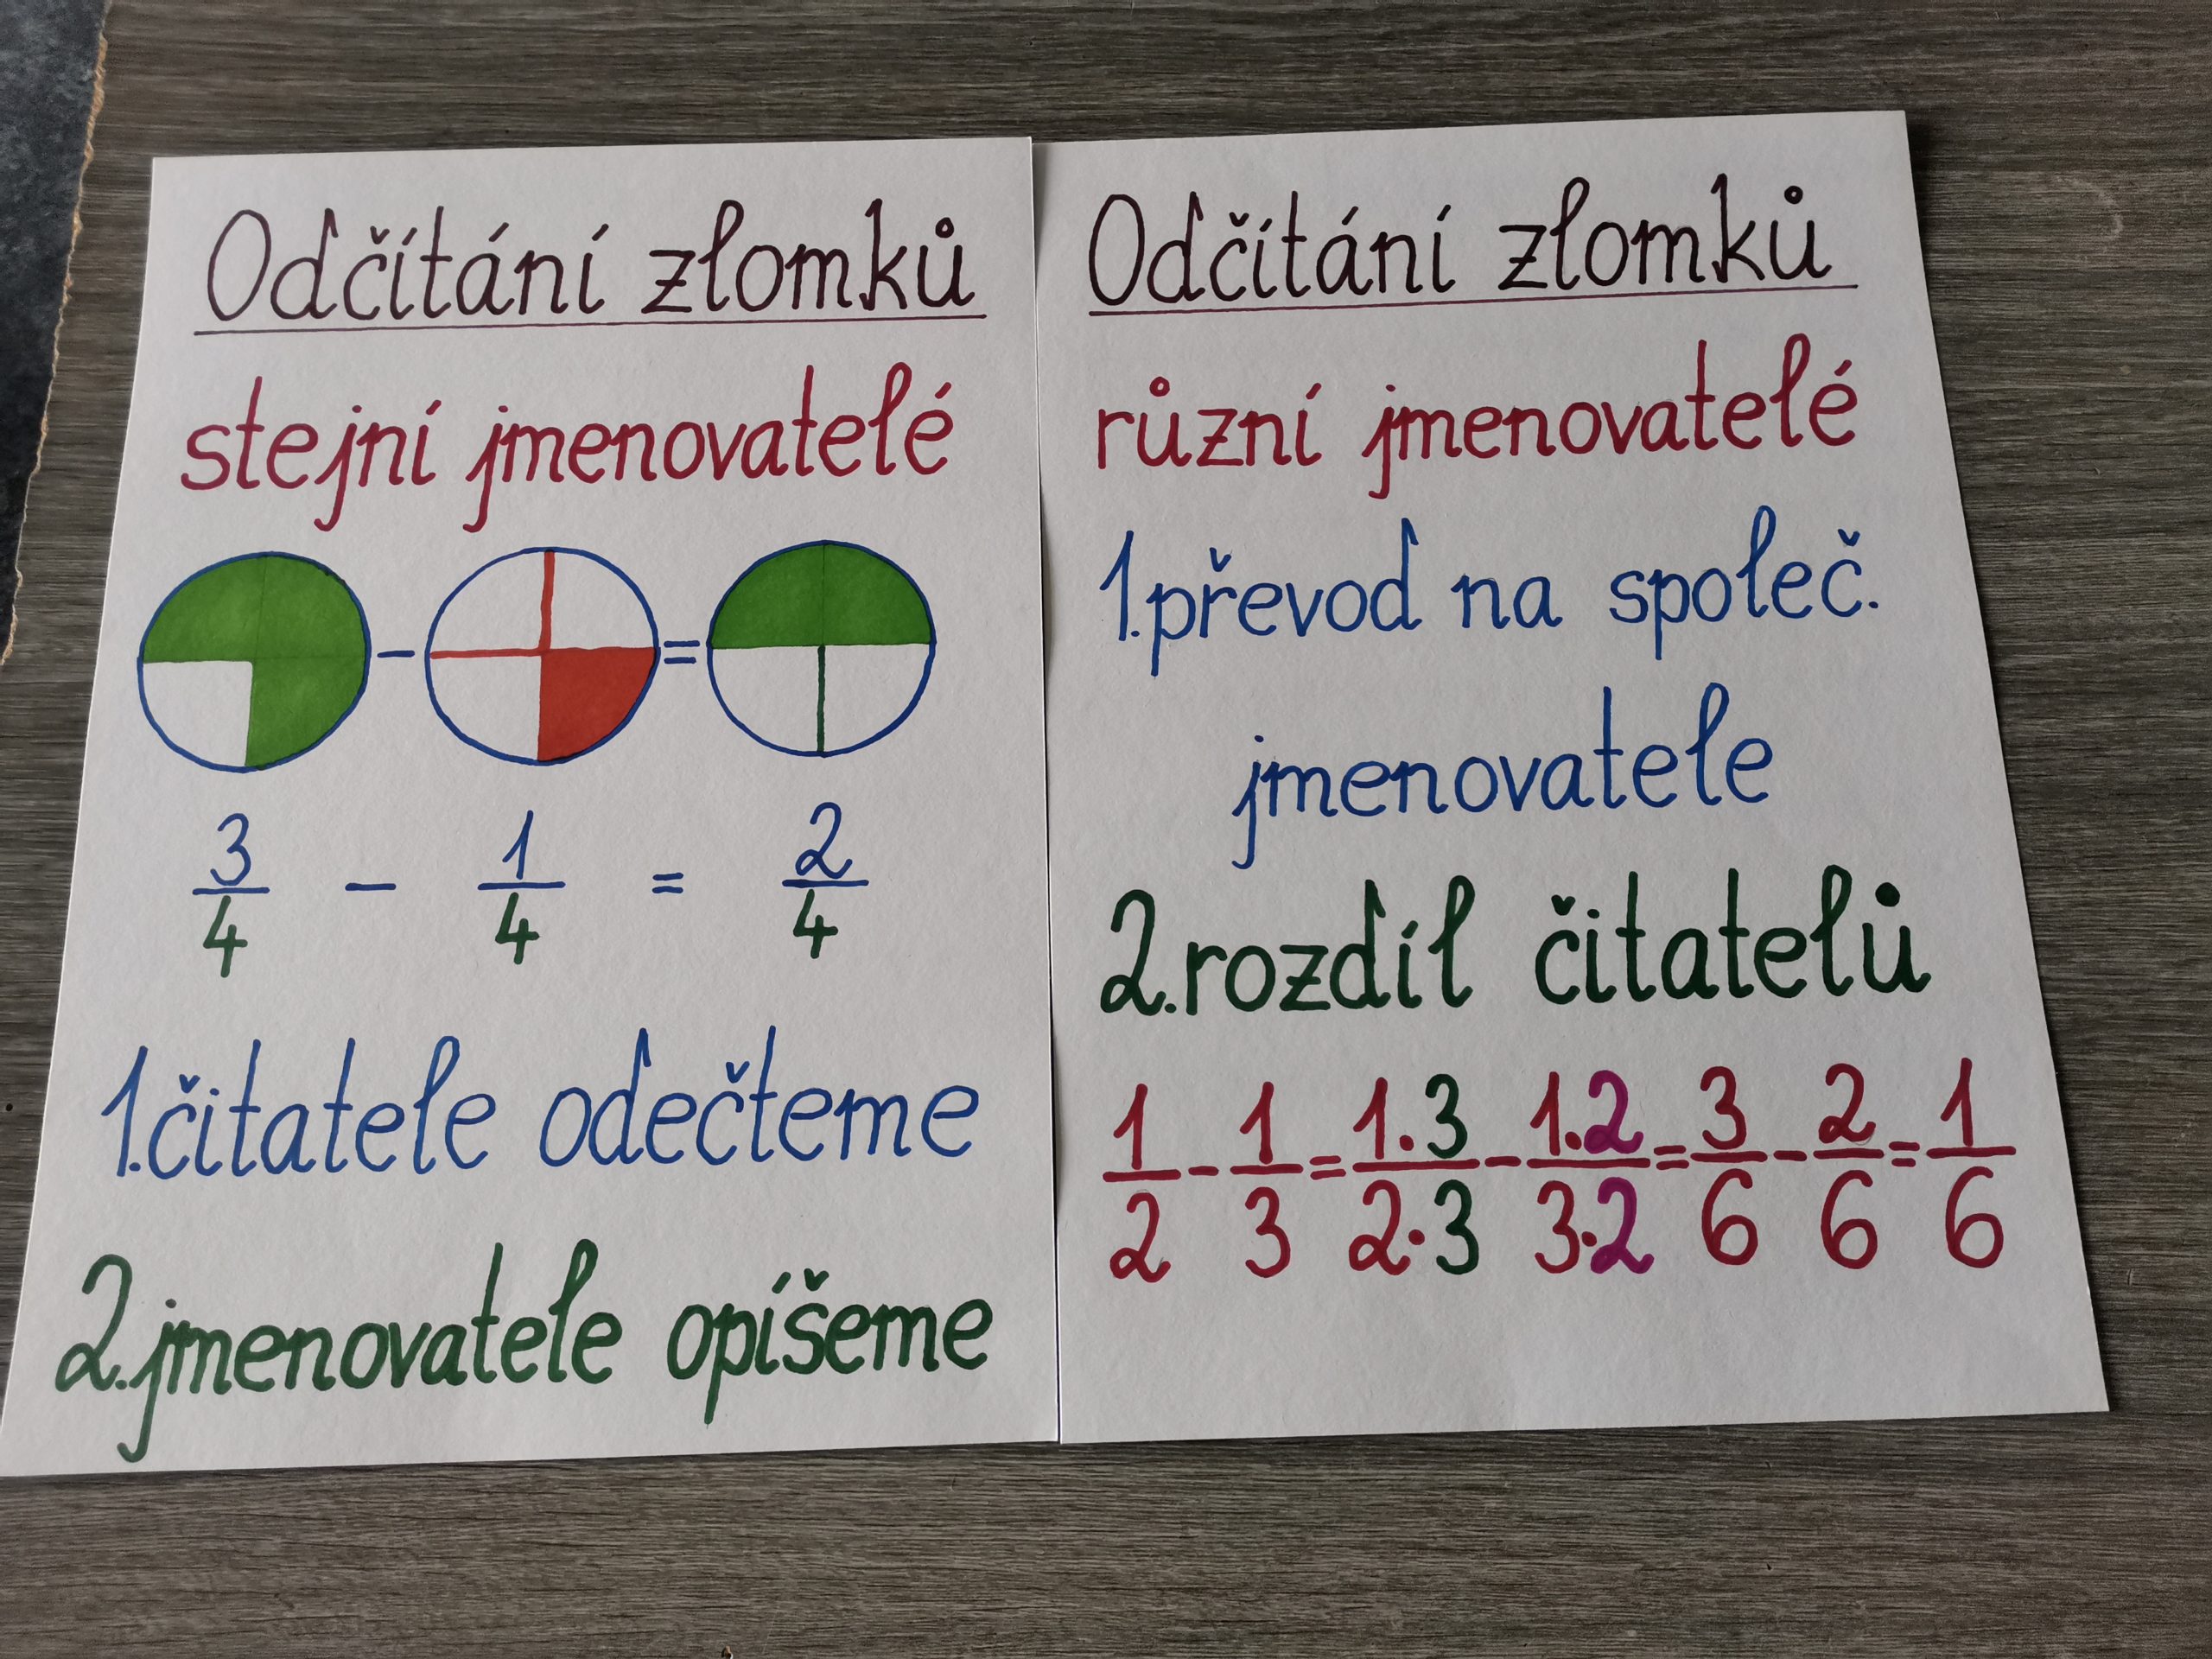 Odčítání zlomků
stejní jmenovatelé
- =
3/4 - 1/4 = 2/4
1.čitatele odečteme
2.jmenovatele opíšeme
Odčítání zlomků
různí jmenovatelé
1.převod na společ.
jmenovatele
2.rozdíl čitatelů
1/2 - 1/3 = 1.3/2.3 - 1.2/3.2 = 3/6 - 2/6 = 1/6